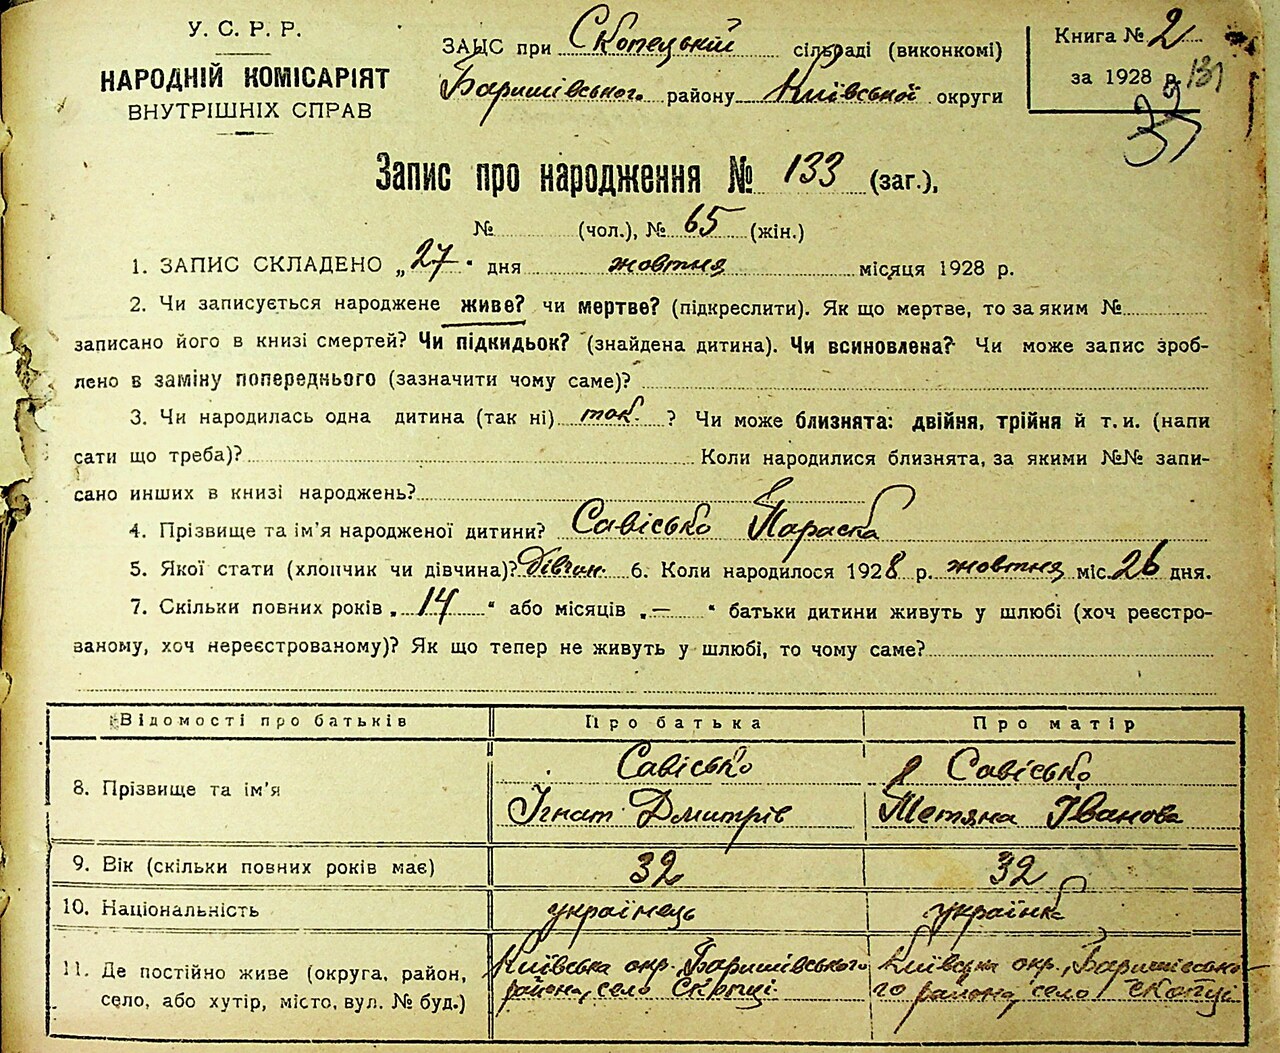 У. С. Р. Р.
НАРОДНІЙ КОМІСАРІЯТ
ВНУТРІШНІХ СПРАВ
ЗАЦС при Скопецькій сільраді (виконкомі)
Баришівського району Київської округи
Книга № 2
за 1928 р.
131
39
Запис про народження № 133 (заг.),
№ (чол.), № 65 (жін.)
1. ЗАПИС СКЛАДЕНО „27" дня жовтня місяця 1928 р.
2. Чи записується народжене живе? чи мертве? (підкреслити). Як що мертве, то за яким №
записано його в книзі смертей? Чи підкидьок? (знайдена дитина). Чи всиновлена? Чи може запис зроб-
лено в заміну попереднього (зазначити чому саме)?
3. Чи народилась одна дитина (так ні) так ? Чи може близнята: двійня, трійня й т. и. (напи
сати що треба)? Коли народилися близнята, за якими №№ запи-
сано инших в книзі народжень?
4. Прізвище та ім'я народженої дитини? Савісько Параска
5. Якої стати (хлопчик чи дівчина)? дівчин. 6. Коли народилося 1928 р. жовтня міс. 26 дня.
7. Скільки повних років „14" або місяців „—" батьки дитини живуть у шлюбі (хоч реєстро-
ваному, хоч нереєстрованому)? Як що тепер не живуть у шлюбі, то чому саме?
Відомості про батьків Про батька Про матір
8. Прізвище та ім'я Савісько Ігнат Дмитрів Савісько Тетяна Іванова
9. Вік (скільки повних років має) 32 32
10. Національність українець українка
11. Де постійно живе (округа, район, Київська окр. Баришівського Київська окр., Баришівсько-
село, або хутір, місто, вул. № буд.) района, село Скопці. го района, село Скопці